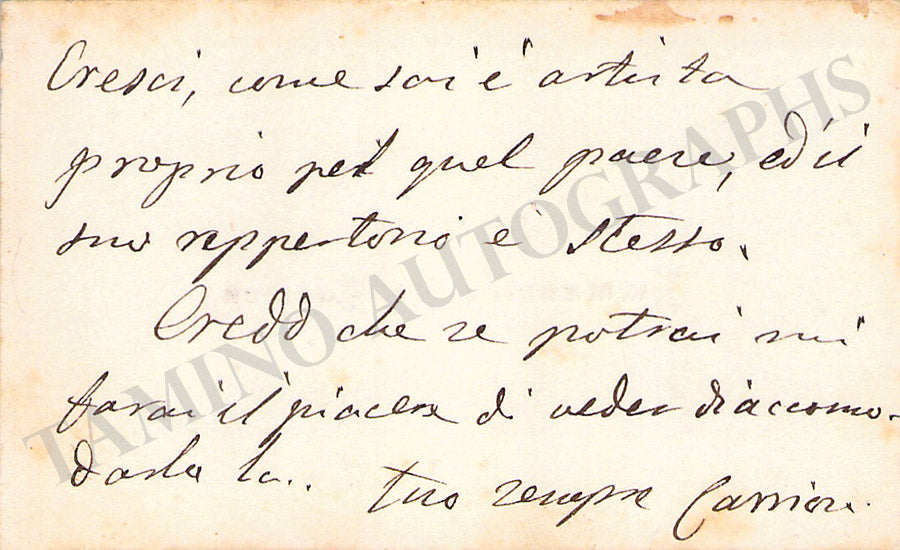 Cresci, come sai è artista
proprio pel quel paese, ed il
suo reppertorio è stesso.
Credo che se potrai mi
farai il piacere di veder di accomo-
darla la..
tuo sempre
TAMINO AUTOGRAPHS